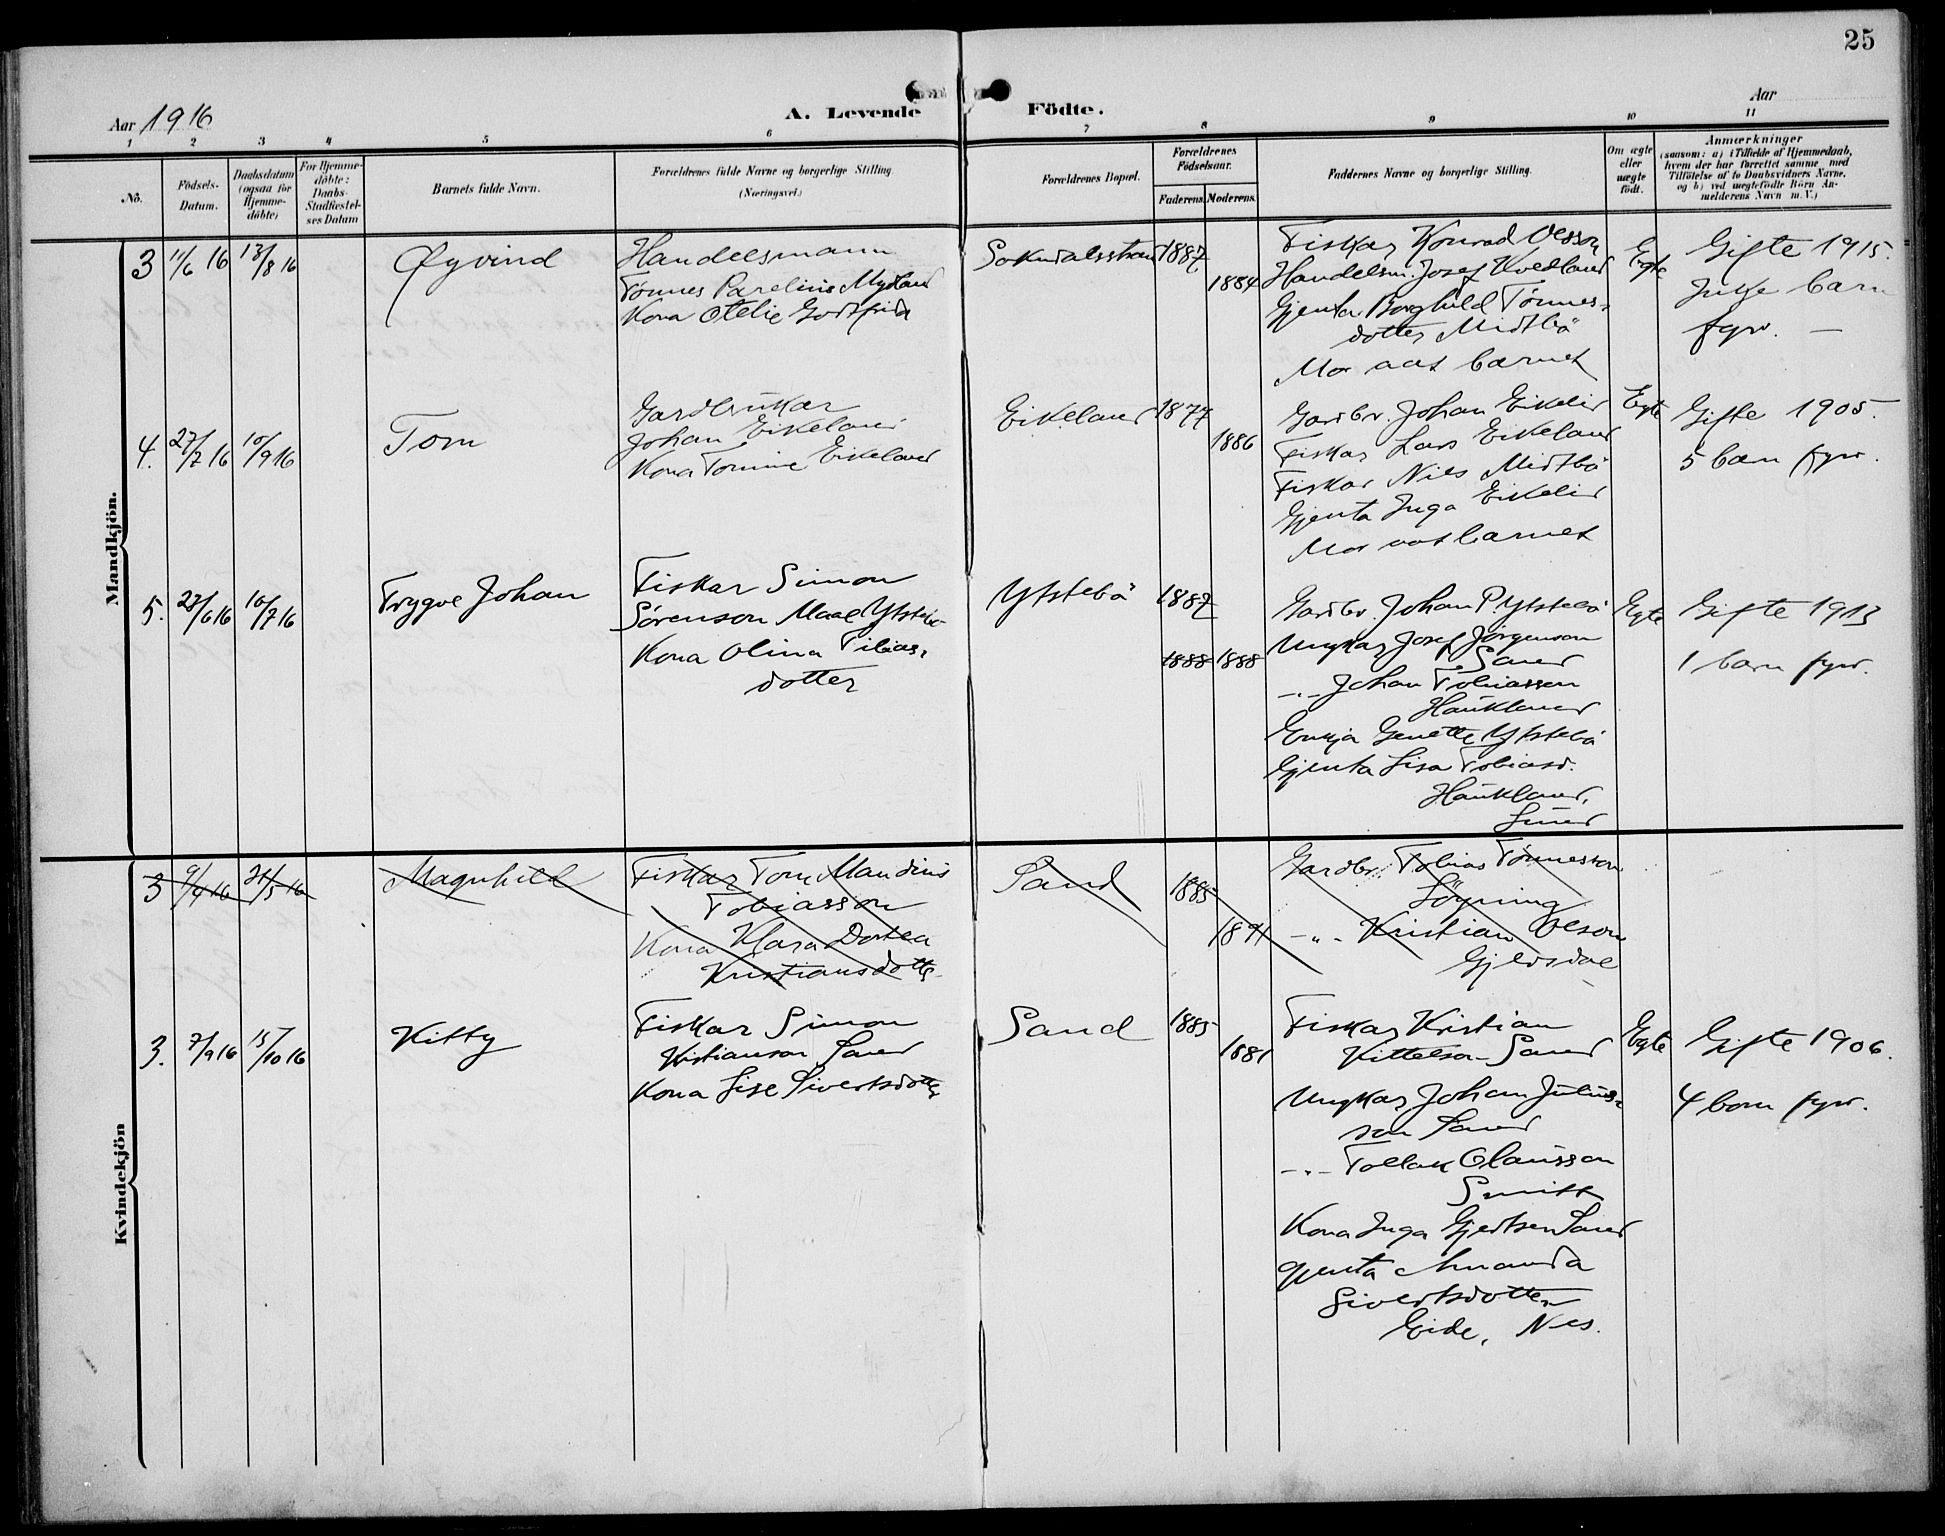 25
Aar 1916
A. Levende Födte.
Aar
1 2 3 4 5 6 7 8 9 10 11
No.
Födsels-
Datum.
Daabsdatum
(ogsaa for
Hjemme-
döbte)
For Hjemme-
döbte:
Daabs-
Stadfæstel-
ses Datum
Barnets fulde Navn.
Forældrenes fulde Navne og borgerlige Stilling
(Næringsvei.)
Forældrenes Bopæl.
Forældrenes
Födselsaar.
Faderens. Moderens.
Faddernes Navne og borgerlige Stilling.
Om ægte
eller
uægte
födt.
Anmærkninger
(saasom: a) i Tilfælde af Hjemmedaab,
hvem der har forrettet samme, med
Tilföielse af to Daabsvidners Navne,
og b) ved uægtefödte Börn An-
melderens Navn m. V.)
Mandkjön.
3 11/6 16 13/8 16
Øyvind
Handelsmann
Tønnes Parelius Mydland
Kona Otelie Godtfrida
Soknalsstrand
1887
1884
Fiskar Konrad Olsson
Handelsm. Josef Kvedland
Gjenta Borghild Tønnes-
dotter Midtbö
Mor aat barnet
Egte
Gifte 1915.
Inkje barn
fyrr. —
4. 27/7 16 10/9 16
Tom
Gardbrukar
Johan Eikeland
Kona Tomine Eikeland
Eikeland
1877
1886
Gardbr. Johan Eikelid
Fiskar Lars Eikeland
Fiskar Nils Midtbö
Gjenta Inga Eikelid
Mor aat barnet
Egte
Gifte 1905.
5 barn fyrr.
5. 23/6 16 10/7 16
Trygve Johan
Fiskar Simon
Sörenson Maal Ytstebö
Kona Olina Tobias-
dotter
Ytstebö
1887
1888 1888
Gardbr. Johan P. Ytstebö
Ungkar Josef Jörgenson
Sand
-"- Johan Tobiasson
Haukland
Enkja Genette Ytstebö
Gjenta Lisa Tobiasd.
Haukland,
Lund
Egte
Gifte 1913
1 barn fyrr.
Kvindekjön
3 9/4 16 21/5 16
Magnhild
Fiskar Tom Mandius
Tobiasson
Kona Klara Dortea
Kristiansdotte
Sand
1885
1891
Gardbr. Tobias Tønnesson
Lögning
-"- Kristian Oleson
Gjersdal
3. 7/9 16 15/10 16
Kitty
Fiskar Simon
Kristianson Sand
Kona Lise Sivertsdotter
Sand
1885
1881
Fiskar Kristian
Kittelson Sand
Ungkar Johan Julius-
son Sand
-"- Tollak Olausson
Smitt
Kona Inga Gjertsen Sand
gjenta Amanda
Sivertsdotter
Eide, Nes.
Egte
Gifte 1906.
4 born fyrr.